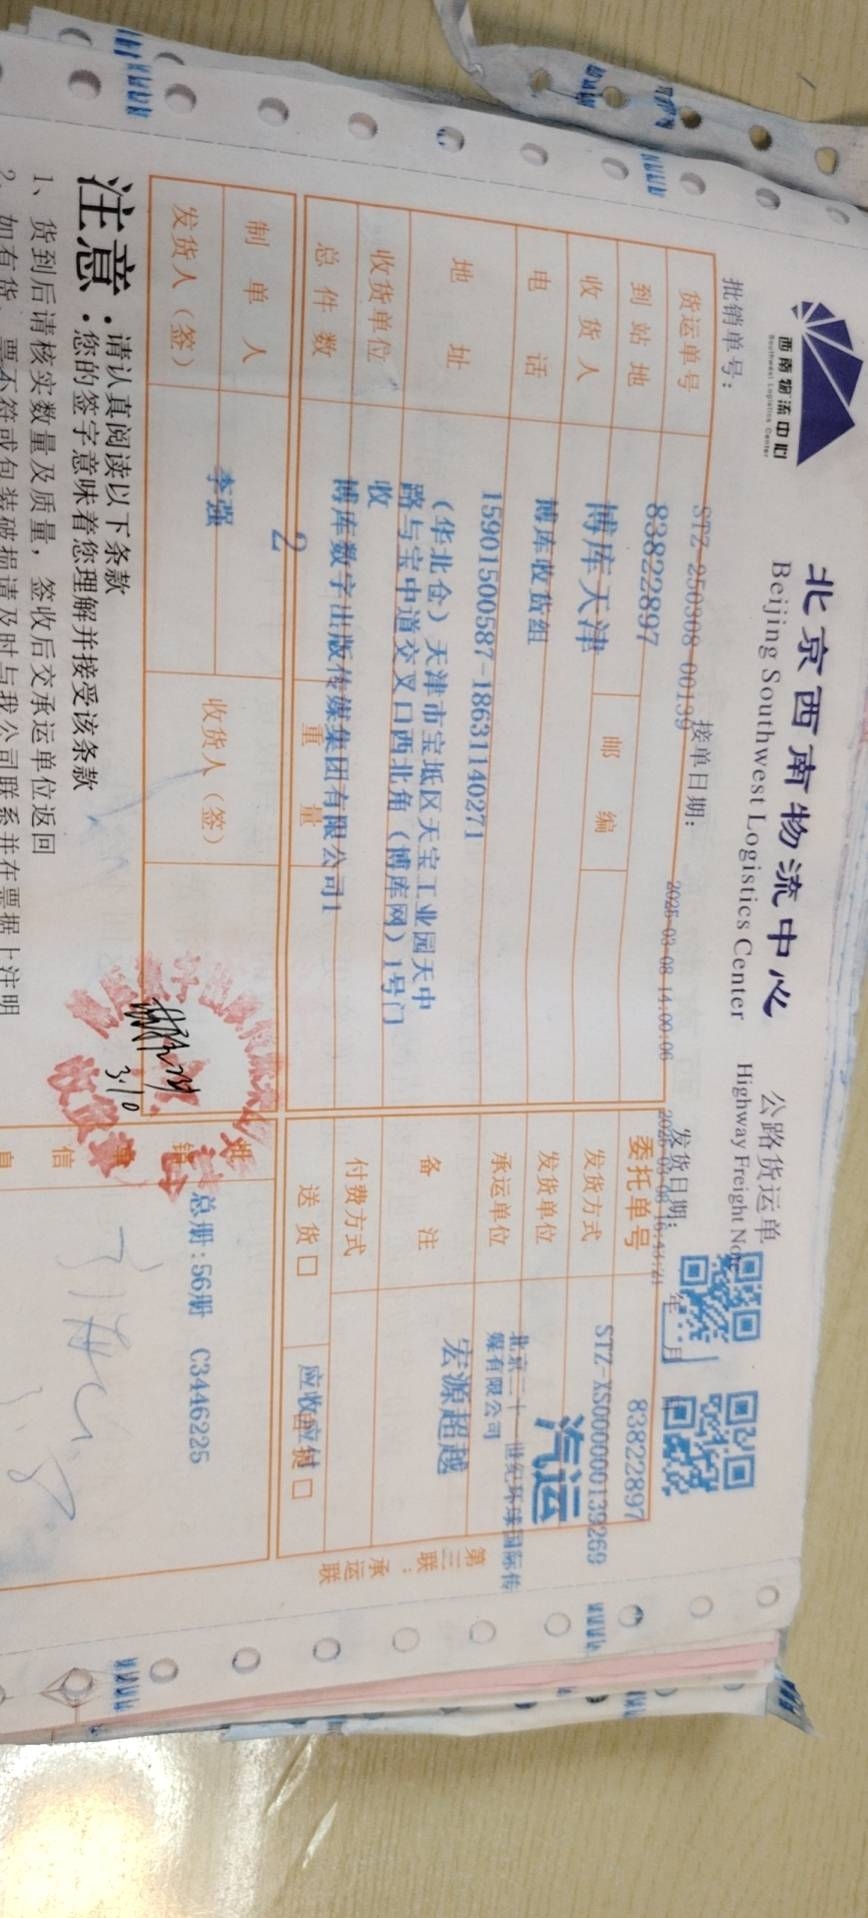 西南物流中心
Southwest Logistics Center
北京西南物流中心 公路货运单
Beijing Southwest Logistics Center Highway Freight Note
批销单号：
接单日期： 发货日期： 年 月
STZ-250308-00139 2025-03-08 14:00:06
货运单号 83822897 委托单号 83822897
到站地 博库天津 邮编 发货方式 STZ-XS000000139269
汽运
收货人 博库收货组 发货单位 北京二十一世纪环球国际传
媒有限公司
电话 15901500587-18631140271 承运单位 宏源超越
地址 （华北仓）天津市宝坻区天宝工业园天中
路与宝中道交叉口西北角（博库网）1号门
收
备注
收货单位 博库数字出版传媒集团有限公司1 付费方式
总件数 2 重量 送货口 应收应付
制单人 李强 收货人（签）
发货人（签）
总册:56册 C3446225
3.10
收货章
第三联：承运联
注意：请认真阅读以下条款
您的签字意味着您理解并接受该条款
1、货到后请核实数量及质量，签收后交承运单位返回
2、如有货、票不符或包装破损请及时与我公司联系并在票据上注明